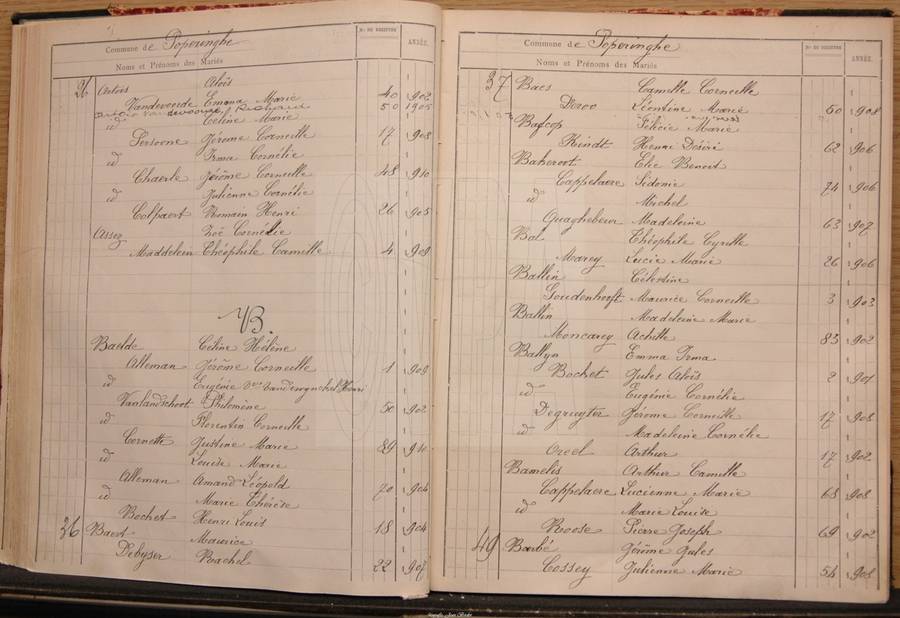 Commune de Poperinghe
Nos DU REGISTRE
ANNÉE
Noms et Prénoms des Mariés
26 Artois Aloïs
Vandevoorde Emma Marie 40 1902
Artois Vandevoorde Richard 50 1905
id Céline Marie
Persoone Jérome Corneille 17 1908
id Irma Cornélie
Chaerle Jérôme Corneille 48 1910
id Julienne Cornélie
Colpaert Romain Henri 26 1905
Assez Zoë Cornélie
Maddelein Théophile Camille 4 1909
B.
Baelde Céline Hélène
Alleman Jérôme Corneille 1 1909
id Eugénie Vve Vandewynckel Henri
Vanlandschoot Philomène 50 1902
id Florentin Corneille
Cornette Justine Marie 89 1910
id Louise Marie
Alleman Amand Léopold 70 1904
id Marie Thérèse
Bochet Henri Louis 18 1904
36 Baert Maurice
Debyser Rachel 22 1907
Commune de Poperinghe
Nos DU REGISTRE
ANNÉE
Noms et Prénoms des Mariés
37 Baes Camille Corneille
Deroo Léontine Marie 60 1908
Bafcop Félicie Marie
Reindt Henri Désiré 62 1906
Bakeroot Elie Benoit
Cappelaere Sidonie 74 1906
id Michel
Quaghebeur Madeleine 63 1907
Bal Théophile Cyrille
Marey Lucie Marie 26 1906
Ballin Célestine
Goudenhooft Maurice Corneille 3 1903
Ballin Madeleine Marie
Moncarey Achille 83 1902
Ballyn Emma Irma
Bochet Jules Aloïs 2 1901
id Eugénie Cornélie
Degruyter Jérome Corneille 17 1908
id Madeleine Cornélie
Oreel Arthur 17 1902
Bamelis Arthur Camille
Cappelaere Lucienne Marie 68 1908
id Marie Louise
Roose Pierre Joseph 69 1902
49 Barbé Jérôme Jules
Cossey Julienne Marie 54 1908